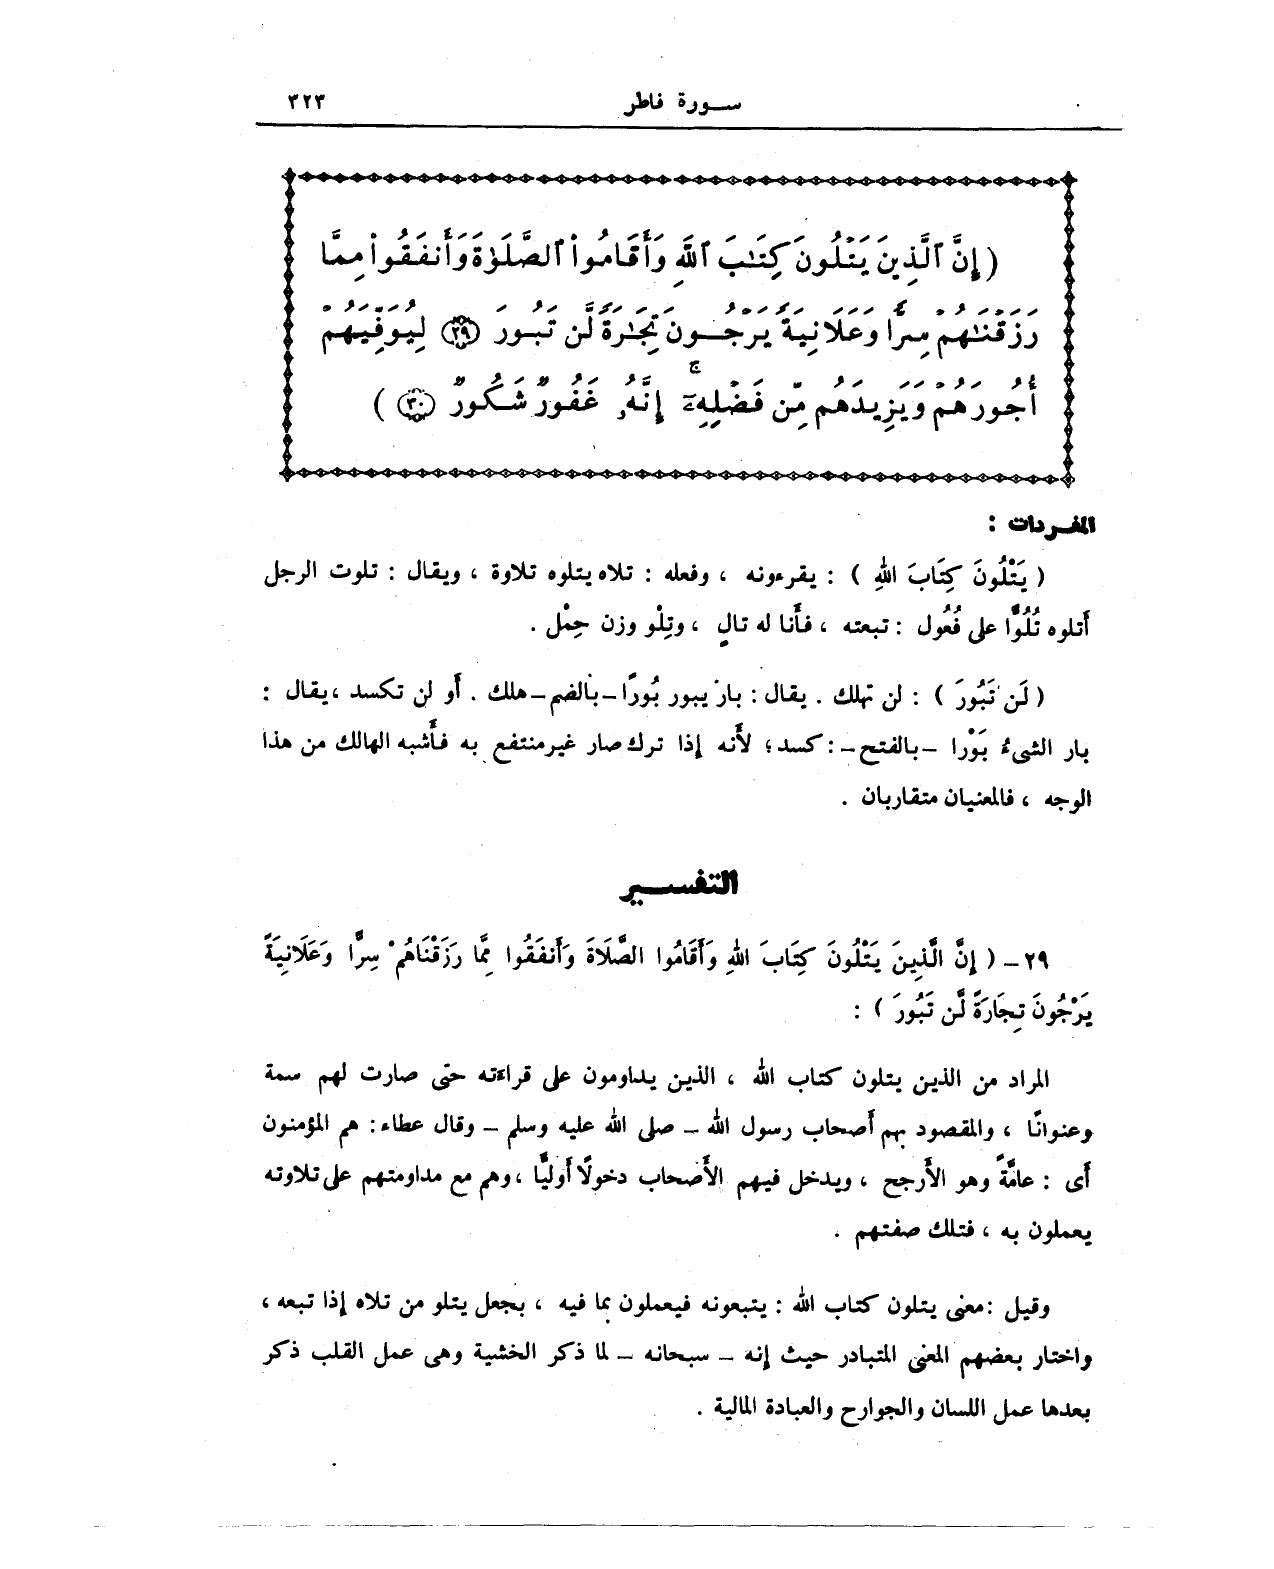 سورة فاطر ٣٢٣
(إِنَّ ٱلَّذِينَ يَتۡلُونَ كِتَٰبَ ٱللَّهِ وَأَقَامُواْ ٱلصَّلَوٰةَ وَأَنفَقُواْ مِمَّا
رَزَقۡنَٰهُمۡ سِرّٗا وَعَلَانِيَةٗ يَرۡجُونَ تِجَٰرَةٗ لَّن تَبُورَ ٢٩ لِيُوَفِّيَهُمۡ
أُجُورَهُمۡ وَيَزِيدَهُم مِّن فَضۡلِهِۦٓۚ إِنَّهُۥ غَفُورٞ شَكُورٞ ٣٠)
المفردات :
( يَتْلُونَ كِتَابَ اللهِ ) : يقرءونه ، وفعله : تلاه يتلوه تلاوة ، ويقال : تلوت الرجل
أتلوه تُلُوًّا على فُعُول : تبعته ، فأنا له تالٍ ، وتِلْو وزن حِمْل .
( لَن تَبُورَ ) : لن تهلك . يقال : بار يبور بُورًا – بالضم – هلك . أو لن تكسد ، يقال :
بار الشىءُ بَوْرا – بالفتح – : كسد ؛ لأنه إذا ترك صار غير منتفع به فأشبه الهالك من هذا
الوجه ، فالمعنيان متقاربان .
التفسير
٢٩ – ( إِنَّ الَّذِينَ يَتْلُونَ كِتَابَ اللهِ وَأَقَامُوا الصَّلَاةَ وَأَنفَقُوا مِمَّا رَزَقْنَاهُمْ سِرًّا وَعَلَانِيَةً
يَرْجُونَ تِجَارَةً لَّن تَبُورَ ) :
المراد من الذين يتلون كتاب الله ، الذين يداومون على قراءته حتى صارت لهم سمة
وعنوانًا ، والمقصود بهم أصحاب رسول الله – صلى الله عليه وسلم – وقال عطاء : هم المؤمنون
أى : عامَّةً وهو الأرجح ، ويدخل فيهم الأصحاب دخولًا أوليًّا ، وهم مع مداومتهم على تلاوته
يعملون به ، فتلك صفتهم .
وقيل : معنى يتلون كتاب الله : يتبعونه فيعملون بما فيه ، بجعل يتلو من تلاه إذا تبعه ،
واختار بعضهم المعنى المتبادر حيث إنه – سبحانه – لما ذكر الخشية وهى عمل القلب ذكر
بعدها عمل اللسان والجوارح والعبادة المالية .